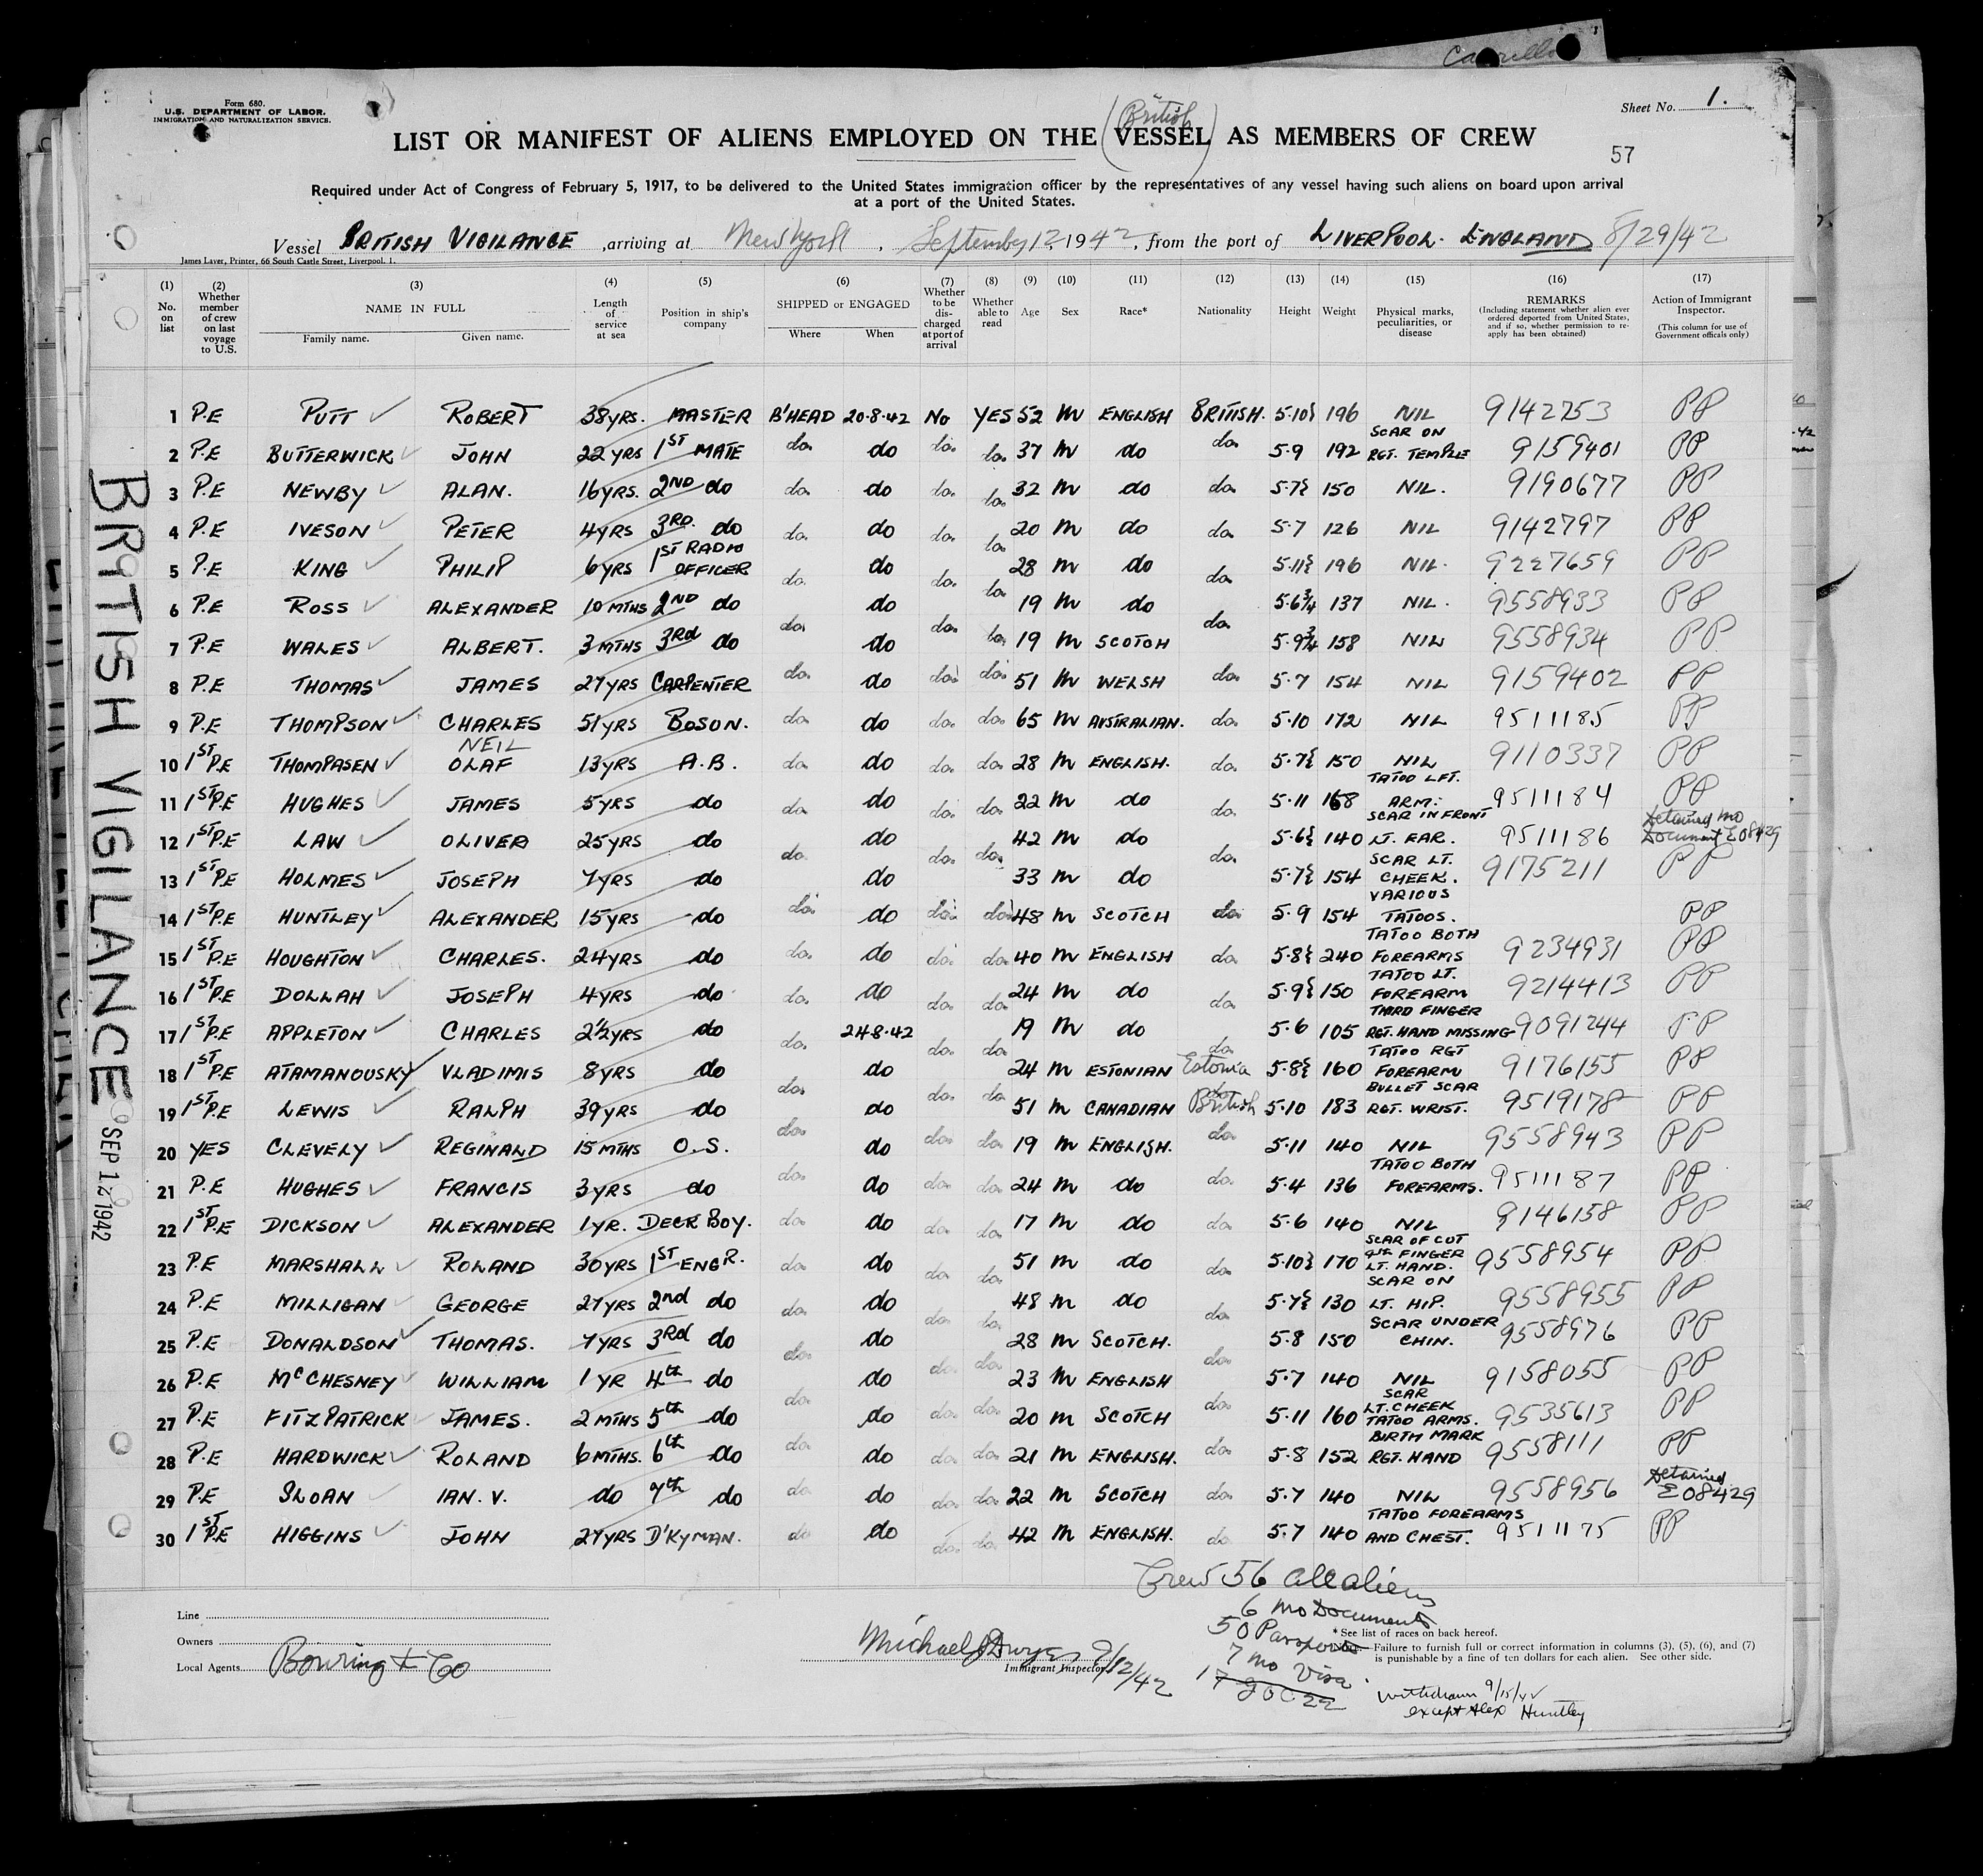 Carrillo
Form 680.
U.S. DEPARTMENT OF LABOR.
IMMIGRATION AND NATURALIZATION SERVICE.
Sheet No. 1.
British
LIST OR MANIFEST OF ALIENS EMPLOYED ON THE (VESSEL) AS MEMBERS OF CREW
57
Required under Act of Congress of February 5, 1917, to be delivered to the United States immigration officer by the representatives of any vessel having such aliens on board upon arrival
at a port of the United States.
Vessel BRITISH VIGILANCE, arriving at New York, September 12 1942, from the port of LIVERPOOL. ENGLAND 8/29/42
James Laver, Printer, 66 South Castle Street, Liverpool. 1.
(1) No. on list
(2) Whether member of crew on last voyage to U.S.
(3) NAME IN FULL Family name. Given name.
(4) Length of service at sea
(5) Position in ship's company
(6) SHIPPED or ENGAGED Where When
(7) Whether to be discharged at port of arrival
(8) Whether able to read
(9) Age
(10) Sex
(11) Race*
(12) Nationality
(13) Height
(14) Weight
(15) Physical marks, peculiarities, or disease
(16) REMARKS (Including statement whether alien ever ordered deported from United States, and if so, whether permission to re-apply has been obtained)
(17) Action of Immigrant Inspector. (This column for use of Government officals only)
1 P.E PUTT ✓ ROBERT 38YRS. MASTER B'HEAD 20·8·42 NO YES 52 M ENGLISH BRITISH. 5·10½ 196 NIL 9142753 PP
2 P.E BUTTERWICK ✓ JOHN 22YRS 1ST MATE do. do do. do. 37 M do do. 5·9 192 SCAR ON RGT. TEMPLE 9159401 PP
3 P.E NEWBY ✓ ALAN. 16YRS. 2ND do do. do do. do. 32 M do do. 5·7½ 150 NIL. 9190677 PP
4 P.E IVESON ✓ PETER 4YRS 3RD. do do. do do. do. 20 M do do. 5·7 126 NIL 9142797 PP
5 P.E KING ✓ PHILIP 6YRS 1ST RADIO OFFICER do. do do. do. 28 M do do. 5·11½ 196 NIL. 9227659 PP
6 P.E ROSS ✓ ALEXANDER 10 MTHS 2ND do do. do do. do. 19 M do do. 5·6¾ 137 NIL. 9558933 PP
7 P.E WALES ✓ ALBERT. 3 MTHS 3Rd do do do 19 M SCOTCH 5·9¾ 158 NIL 9558934 PP
8 P.E THOMAS ✓ JAMES 27YRS CARPENTER do. do do. do. 51 M WELSH do. 5·7 154 NIL 9159402 PP
9 P.E THOMPSON ✓ CHARLES 51YRS BOSON. do. do do. do. 65 M AUSTRALIAN. do. 5·10 172 NIL 9511185 PP
10 1ST P.E THOMPASEN ✓ NEIL OLAF 13YRS A.B. do. do do. do. 28 M ENGLISH. do. 5·7½ 150 NIL 9110337 PP
11 1ST P.E HUGHES ✓ JAMES 5YRS do do. do do. do. 22 M do do. 5·11 168 TATOO LFT. ARM. 9511184 PP
12 1ST P.E LAW ✓ OLIVER 25YRS do do. do do. do. 42 M do do. 5·6½ 140 SCAR IN FRONT LT. EAR. 9511186 Detained no Document E08429
13 1ST P.E HOLMES ✓ JOSEPH 7YRS do do 33 M do 5·7½ 154 SCAR LT. CHEEK. 9175211 PP
14 1ST P.E HUNTLEY ✓ ALEXANDER 15YRS do do. do do. do. 48 M SCOTCH do. 5·9 154 VARIOUS TATOOS. PP
15 1ST P.E HOUGHTON ✓ CHARLES. 24YRS do do. do do. do. 40 M ENGLISH do. 5·8½ 240 TATOO BOTH FOREARMS 9234931 PP
16 1ST P.E DOLLAH ✓ JOSEPH 4YRS do do. do do. do. 24 M do do. 5·9½ 150 TATOO LT. FOREARM 9214413 PP
17 1ST P.E APPLETON ✓ CHARLES 2½YRS do do. 24·8·42 do. do. 19 M do do. 5·6 105 THIRD FINGER RGT. HAND MISSING 9091244 PP
18 1ST P.E ATAMANOUSKY ✓ VLADIMIS 8YRS do do. do do. do. 24 M ESTONIAN Estonia 5·8½ 160 TATOO RGT FOREARM 9176155 PP
19 1ST P.E LEWIS ✓ RALPH 39YRS do do 51 M CANADIAN do. British 5·10 183 BULLET SCAR RGT. WRIST. 9519178 PP
20 YES CLEVELY ✓ REGINALD 15 MTHS O.S. do. do do. do. 19 M ENGLISH. do. 5·11 140 NIL 9558943 PP
21 P.E HUGHES ✓ FRANCIS 3YRS do do. do do. do. 24 M do do. 5·4 136 TATOO BOTH FOREARMS. 9511187 PP
22 1ST P.E DICKSON ✓ ALEXANDER 1YR. DECK BOY. do. do do. do. 17 M do do. 5·6 140 NIL 9146158 PP
23 P.E MARSHALL ✓ ROLAND 30YRS 1ST ENGR. do. do do. do. 51 M do do. 5·10½ 170 SCAR OF CUT 4th FINGER LT. HAND. 9558954 PP
24 P.E MILLIGAN ✓ GEORGE 27YRS 2nd do do. do do. do. 48 M do do. 5·7½ 130 SCAR ON LT. HIP. 9558955 PP
25 P.E DONALDSON ✓ THOMAS. 7YRS 3Rd do do. do 28 M SCOTCH. do. 5·8 150 SCAR UNDER CHIN. 9558976 PP
26 P.E McCHESNEY ✓ WILLIAM 1YR 4th do do. do do. do. 23 M ENGLISH do. 5·7 140 NIL 9158055 PP
27 P.E FITZPATRICK ✓ JAMES. 2 MTHS 5th do do. do do. do. 20 M SCOTCH do. 5·11 160 SCAR LT. CHEEK TATOO ARMS. 9535613 PP
28 P.E HARDWICK ✓ ROLAND 6 MTHS. 6th do do. do do. do. 21 M ENGLISH. do. 5·8 152 BIRTH MARK RGT. HAND 9558111 PP
29 P.E SLOAN ✓ IAN. V. do 7th do do. do do. do. 22 M SCOTCH do. 5·7 140 NIL 9558956 Detained E08429
30 1ST P.E HIGGINS ✓ JOHN 27YRS D'KYMAN. do do do. do. 42 M ENGLISH. do 5·7 140 TATOO FOREARMS AND CHEST. 9511175 PP
BRITISH VIGILANCE
SEP 12 1942
Crew 56 all aliens
6 no Documents
50 Passports
7 no Visa
Line
Owners
Local Agents Bowring & Co
Michael J Dwyer 9/12/42
Immigrant Inspector
* See list of races on back hereof.
Failure to furnish full or correct information in columns (3), (5), (6), and (7)
is punishable by a fine of ten dollars for each alien. See other side.
withdrawn 9/15/42
except Alex Huntley